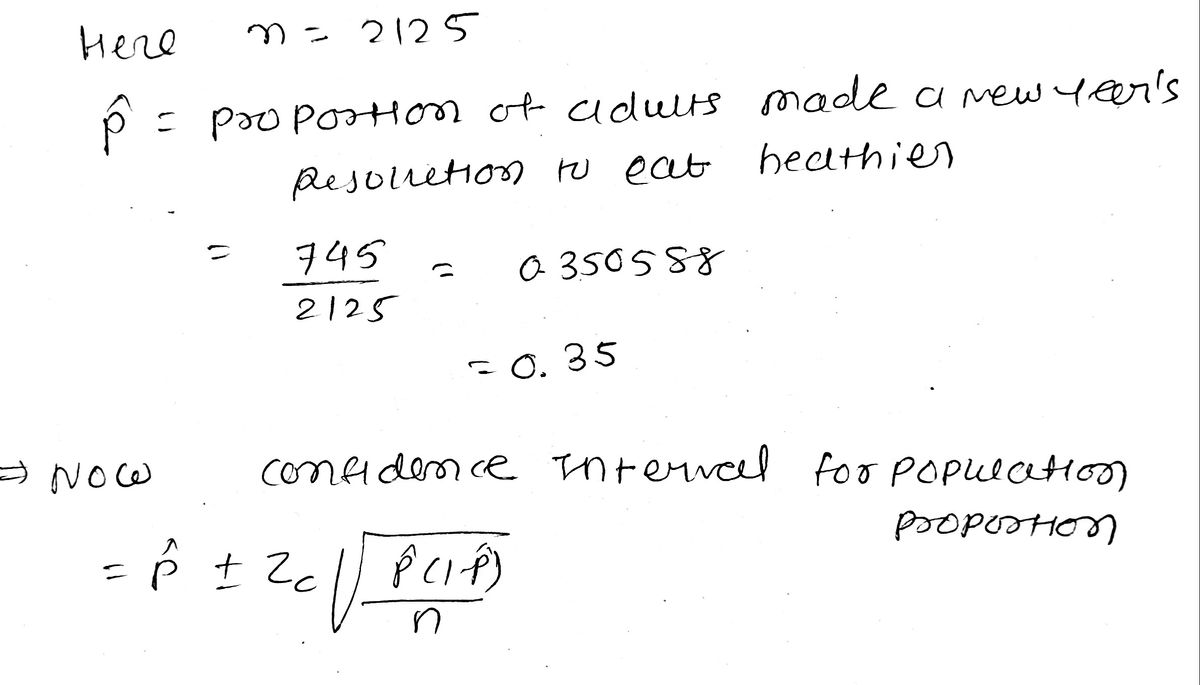 Here n = 2125
p̂ = proportion of adults made a new year's
Resolution to eat healthier
= 745/2125 = 0.350588
= 0.35
⇒ Now confidence Interval for population
proportion
= p̂ ± Zc √(p̂(1-p̂)/n)